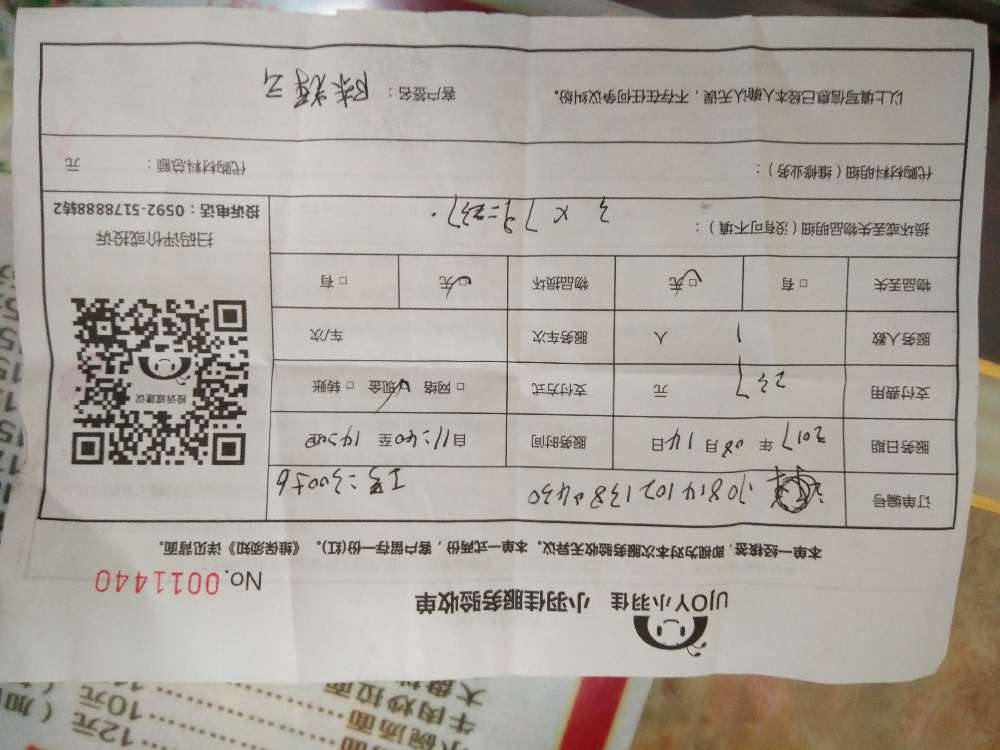 UJOY小羽佳 小羽佳服务验收单
No.0011440
本单一经核签，即视为对本次服务验收无异议。本单一式两份，客户留存一份(红)。《维保须知》详见背面。
订单编号 708141021380430 工号:30056
服务日期 2017 年 08 月 14 日 服务时间 自11:40 至 14:40
支付费用 237 元 支付方式 □ 网络 □ 现金 □ 转账
服务人数 1 人 服务车次 车/次
物品丢失 □ 有 □ 无 物品损坏 □ 无 □ 有
损坏或丢失物品明细（没有可不填）：
3 × 79=237.
代购材料明细（维修业务）： 代购材料总额： 元
以上填写信息已经本人确认无误，不存在任何争议纠纷。 客户签名：
投诉或建议
扫码评价或投诉
投诉电话：0592-5178888转2
12元
10元
小碗汤面
牛肉炒拉面